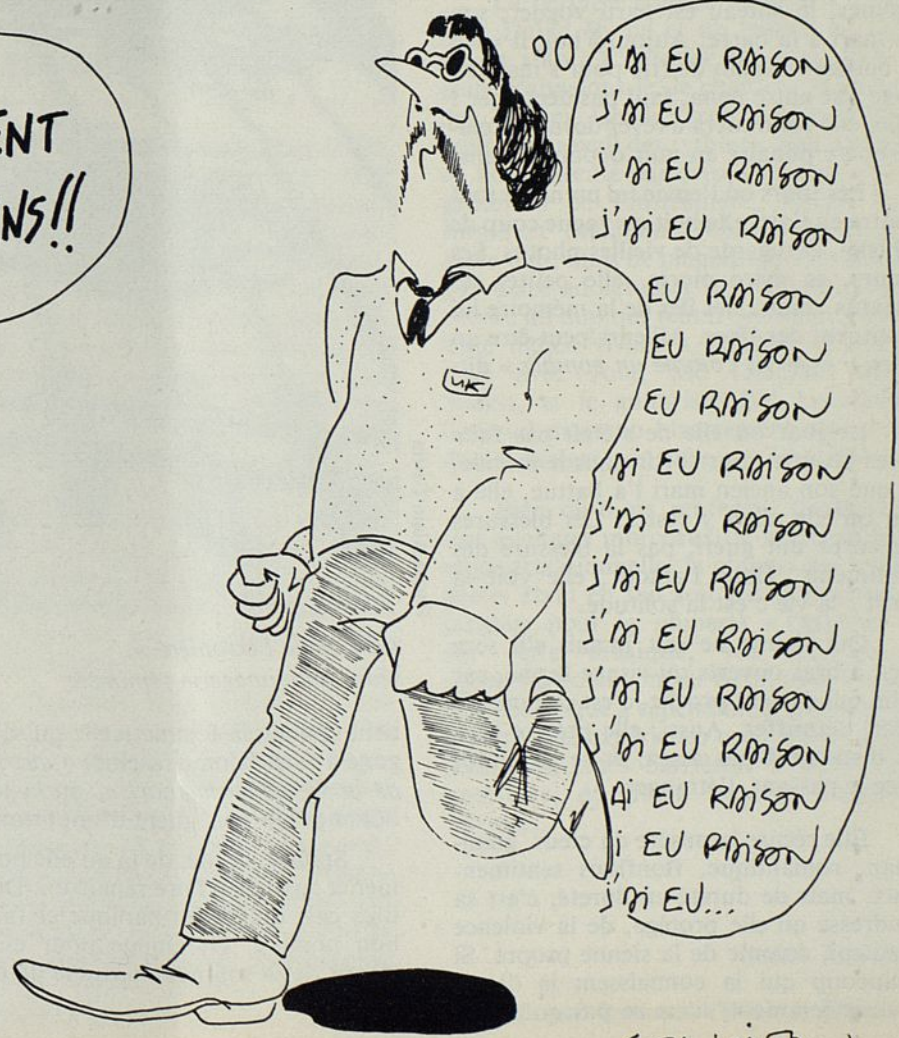 ENT
NS!!
J'AI EU RAISON
J'AI EU RAISON
J'AI EU RAISON
J'AI EU RAISON
EU RAISON
EU RAISON
EU RAISON
AI EU RAISON
J'AI EU RAISON
J'AI EU RAISON
J'AI EU RAISON
J'AI EU RAISON
J'AI EU RAISON
AI EU RAISON
I EU RAISON
J'AI EU...
UK